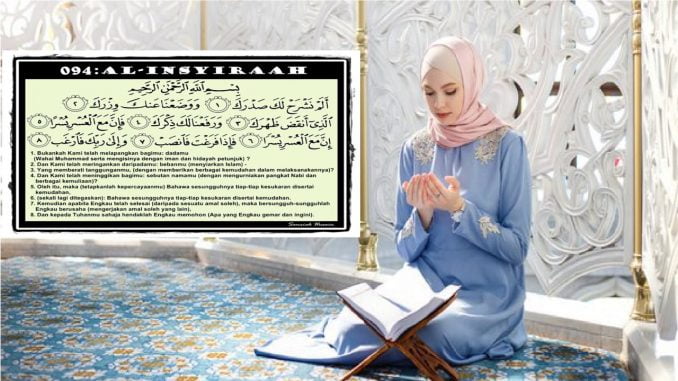 094:AL-INSYIRAAH
بِسْمِ اللَّهِ الرَّحْمَٰنِ الرَّحِيمِ
أَلَمْ نَشْرَحْ لَكَ صَدْرَكَ ١ وَوَضَعْنَا عَنكَ وِزْرَكَ ٢
الَّذِي أَنقَضَ ظَهْرَكَ ٣ وَرَفَعْنَا لَكَ ذِكْرَكَ ٤ فَإِنَّ مَعَ الْعُسْرِ يُسْرًا ٥
إِنَّ مَعَ الْعُسْرِ يُسْرًا ٦ فَإِذَا فَرَغْتَ فَانصَبْ ٧ وَإِلَىٰ رَبِّكَ فَارْغَب ٨
1. Bukankah Kami telah melapangkan bagimu: dadamu
(Wahai Muhammad serta mengisinya dengan iman dan hidayah petunjuk) ?
2. Dan Kami telah meringankan daripadamu: bebanmu (menyiarkan Islam) -
3. Yang memberati tanggunganmu, (dengan memberikan berbagai kemudahan dalam melaksanakannya)?
4. Dan Kami telah meninggikan bagimu: sebutan namamu (dengan mengurniakan pangkat Nabi dan
berbagai kemuliaan)?
5. Oleh itu, maka (tetapkanlah kepercayaanmu) Bahawa sesungguhnya tiap-tiap kesukaran disertai
kemudahan,
6. (sekali lagi ditegaskan): Bahawa sesungguhnya tiap-tiap kesukaran disertai kemudahan.
7. Kemudian apabila Engkau telah selesai (daripada sesuatu amal soleh), maka bersungguh-sungguhlah
Engkau berusaha (mengerjakan amal soleh yang lain),
8. Dan kepada Tuhanmu sahaja hendaklah Engkau memohon (Apa yang Engkau gemar dan ingini).